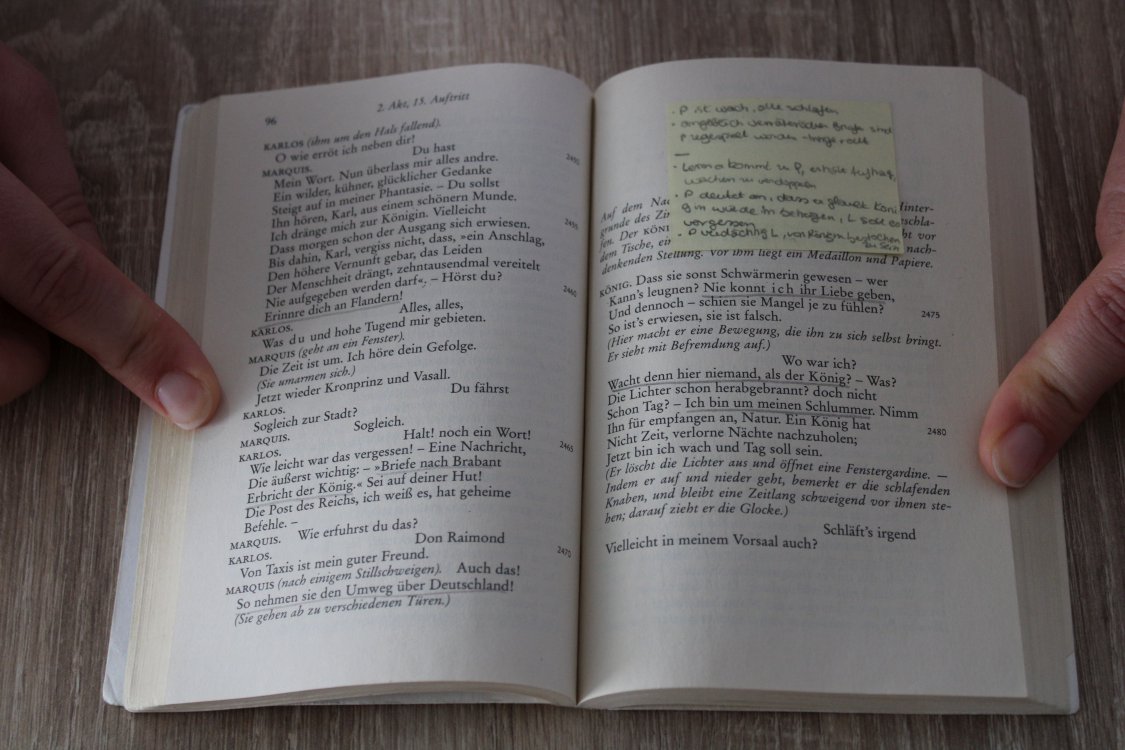 96
2. Akt, 15. Auftritt
KARLOS (ihm um den Hals fallend).
O wie eröt ich neben dir!
MARQUIS. Du hast
Mein Wort. Nun überlass mir alles andre. 2450
Ein wilder, kühner, glücklicher Gedanke
Steigt auf in meiner Phantasie. – Du sollst
Ihn hören, Karl, aus einem schönern Munde.
Ich dränge mich zur Königin. Vielleicht
Dass morgen schon der Ausgang sich erwiesen. 2455
Bis dahin, Karl, vergiss nicht, dass, »ein Anschlag,
Den höhere Vernunft gebar, das Leiden
Der Menschheit drängt, zehntausendmal vereitelt
Nie aufgegeben werden darf«. – Hörst du?
Erinnre dich an Flandern! 2460
KARLOS. Alles, alles,
Was du und hohe Tugend mir gebieten.
MARQUIS (geht an ein Fenster).
Die Zeit ist um. Ich höre dein Gefolge.
(Sie umarmen sich.)
Jetzt wieder Kronprinz und Vasall.
KARLOS. Du fährst
Sogleich zur Stadt?
MARQUIS. Sogleich.
KARLOS. Halt! noch ein Wort!
Wie leicht war das vergessen! – Eine Nachricht, 2465
Die äußerst wichtig: – »Briefe nach Brabant
Erbricht der König.« Sei auf deiner Hut!
Die Post des Reichs, ich weiß es, hat geheime
Befehle. –
MARQUIS. Wie erfuhrst du das?
KARLOS. Don Raimond
Von Taxis ist mein guter Freund. 2470
MARQUIS (nach einigem Stillschweigen). Auch das!
So nehmen sie den Umweg über Deutschland!
(Sie gehen ab zu verschiedenen Türen.)
· P ist wach, alle schlafen
· angeblich verräterischen Briefe sind
P zugespielt worden
—
· Lerma kommt zu P, erhält Auftrag,
Wachen zu verdoppeln
· P deutet an, dass er glaubt Köni
gin würde ihn betrügen, L soll es
vergessen
· P verdächtig L, von Königin bestochen
zu sein
Auf dem Nac Hinter-
grunde des Zi schla-
fen. Der KÖNI vor
dem Tische, ei nach-
denkenden Stellung. Vor ihm liegt ein Medaillon und Papiere.
KÖNIG. Dass sie sonst Schwärmerin gewesen – wer
Kann's leugnen? Nie konnt ich ihr Liebe geben,
Und dennoch – schien sie Mangel je zu fühlen? 2475
So ist's erwiesen, sie ist falsch.
(Hier macht er eine Bewegung, die ihn zu sich selbst bringt.
Er sieht mit Befremdung auf.)
Wo war ich?
Wacht denn hier niemand, als der König? – Was?
Die Lichter schon herabgebrannt? doch nicht
Schon Tag? – Ich bin um meinen Schlummer. Nimm
Ihn für empfangen an, Natur. Ein König hat 2480
Nicht Zeit, verlorne Nächte nachzuholen;
Jetzt bin ich wach und Tag soll sein.
(Er löscht die Lichter aus und öffnet eine Fenstergardine. –
Indem er auf und nieder geht, bemerkt er die schlafenden
Knaben, und bleibt eine Zeitlang schweigend vor ihnen ste-
hen; darauf zieht er die Glocke.)
Schläft's irgend
Vielleicht in meinem Vorsaal auch?